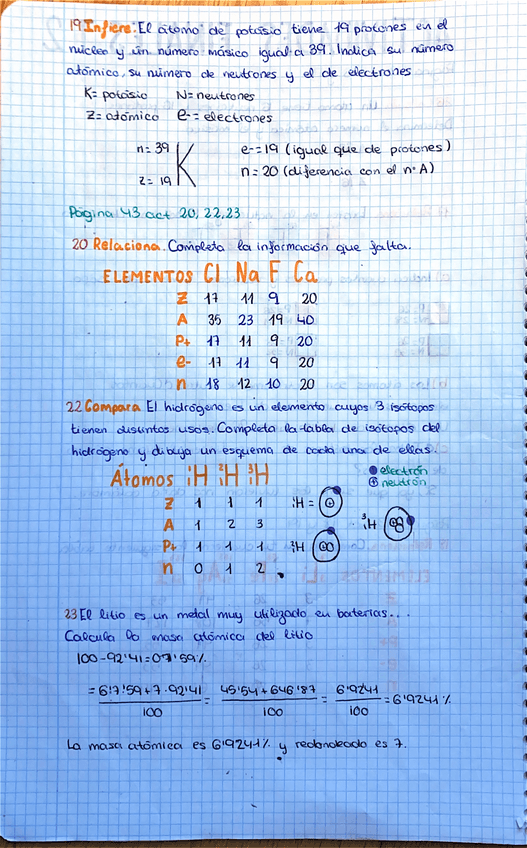 19 Infiere. El átomo de potasio tiene 19 protones en el
núcleo y un número másico igual a 39. Indica su número
atómico, su número de neutrones y el de electrones
K= potasio N= neutrones
Z= atómico e-= electrones
n= 39 K e-=19 (igual que de protones)
Z= 19 n= 20 (diferencia con el nº A)
Página 43 act 20, 22, 23
20 Relaciona. Completa la información que falta.
ELEMENTOS Cl Na F Ca
Z 17 11 9 20
A 35 23 19 40
P+ 17 11 9 20
e- 17 11 9 20
n 18 12 10 20
22 Compara El hidrógeno es un elemento cuyos 3 isótopos
tienen distintos usos. Completa la tabla de isótopos del
hidrógeno y dibuja un esquema de cada una de ellas.
Átomos ¹₁H ²₁H ³₁H
electrón
neutrón
Z 1 1 1 ¹₁H =
A 1 2 3 ³₁H
P+ 1 1 1 ²₁H
n 0 1 2
23 El litio es un metal muy utilizado en baterías...
Calcula la masa atómica del litio
100-92'41=07'59%
= 6·7'59+7·92'41 / 100 = 45'54+646'87 / 100 = 6'9241 / 100 = 6'9241%
La masa atómica es 6'9241% y redondeado es 7.